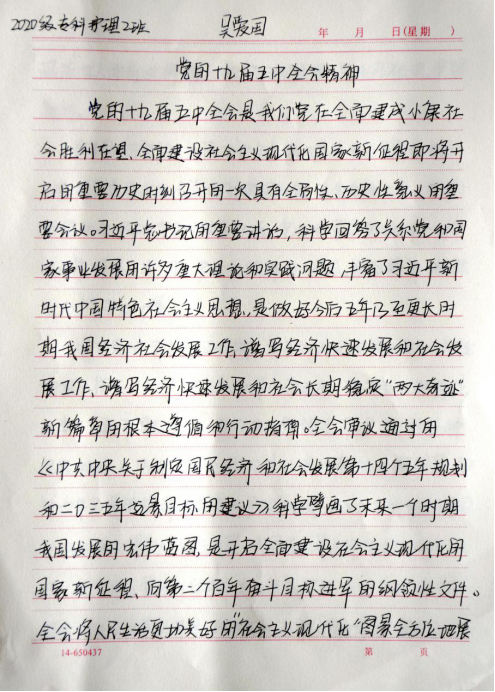 2020级专科护理2班 吴爱国 年 月 日(星期 )
党的十九届五中全会精神
党的十九届五中全会是我们党在全面建成小康社
会胜利在望、全面建设社会主义现代化国家新征程即将开
启的重要历史时刻召开的一次具有全局性、历史性意义的重
要会议。习近平总书记的重要讲话,科学回答了关系党和国
家事业发展的许多重大理论和实践问题,丰富了习近平新
时代中国特色社会主义思想,是做好今后五年乃至更长时
期我国经济社会发展工作,谱写经济快速发展和社会发
展工作,谱写经济快速发展和社会长期稳定"两大奇迹"
新篇章的根本遵循和行动指南。全会审议通过的
《中共中央关于制定国民经济和社会发展第十四个五年规划
和二〇三五年远景目标的建议》科学擘画了未来一个时期
我国发展的宏伟蓝图,是开启全面建设社会主义现代化的
国家新征程、向第二个百年奋斗目标进军的纲领性文件。
全会将人民生活更加美好的"社会主义现代化"图景全方位地展
14-650437 第 页